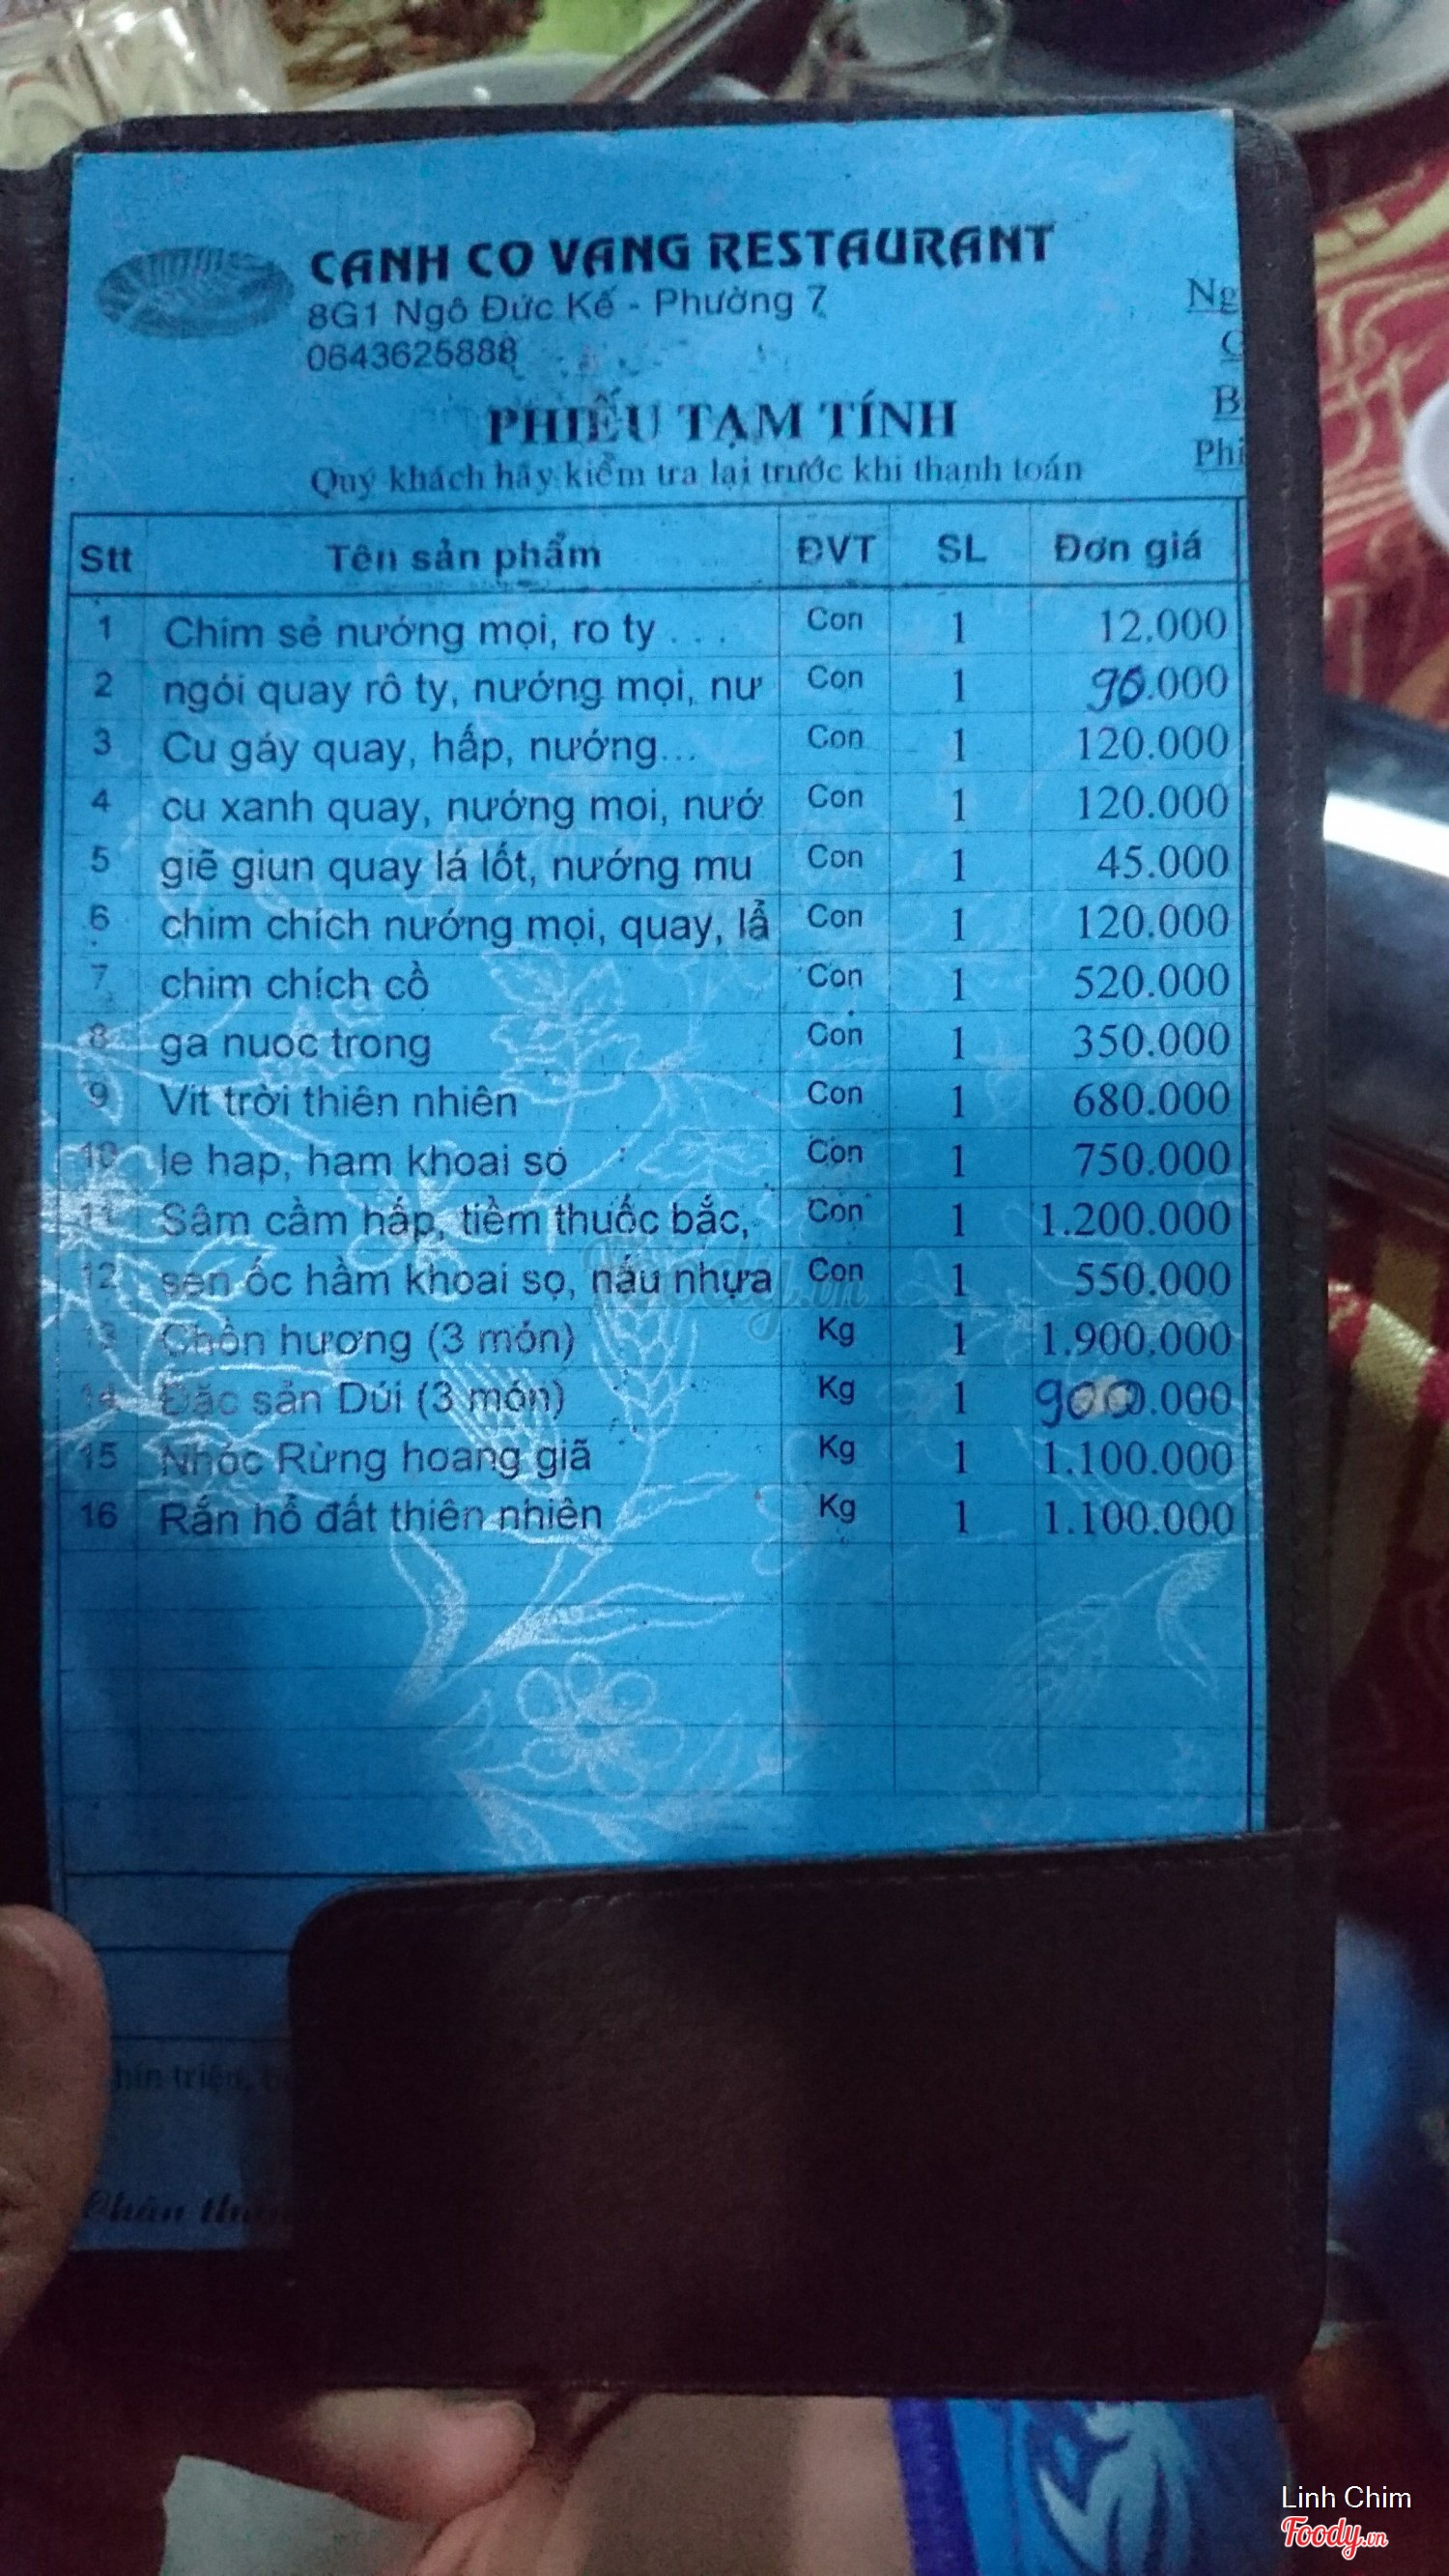 CANH CO VANG RESTAURANT
8G1 Ngô Đức Kế - Phường 7
Ng
0643625888
C
B
PHIẾU TẠM TÍNH
Phi
Quý khách hãy kiểm tra lại trước khi thanh toán
Stt Tên sản phẩm ĐVT SL Đơn giá
1 Chim sẻ nướng mọi, ro ty . . . Con 1 12.000
2 ngói quay rô ty, nướng mọi, nư Con 1 90.000
3 Cu gáy quay, hấp, nướng... Con 1 120.000
4 cu xanh quay, nướng moi, nướ Con 1 120.000
5 giẽ giun quay lá lốt, nướng mu Con 1 45.000
6 chim chích nướng mọi, quay, lẩ Con 1 120.000
7 chim chích cồ Con 1 520.000
8 ga nuoc trong Con 1 350.000
9 Vit trời thiên nhiên Con 1 680.000
10 le hap, ham khoai so Con 1 750.000
11 Sâm cầm hấp, tiềm thuốc bắc, Con 1 1.200.000
12 sen ốc hầm khoai sọ, nấu nhựa Con 1 550.000
13 Chồn hương (3 món) Kg 1 1.900.000
14 Đặc sản Dúi (3 món) Kg 1 900.000
15 Nhóc Rừng hoang giã Kg 1 1.100.000
16 Rắn hổ đất thiên nhiên Kg 1 1.100.000
Linh Chim
Foody.vn